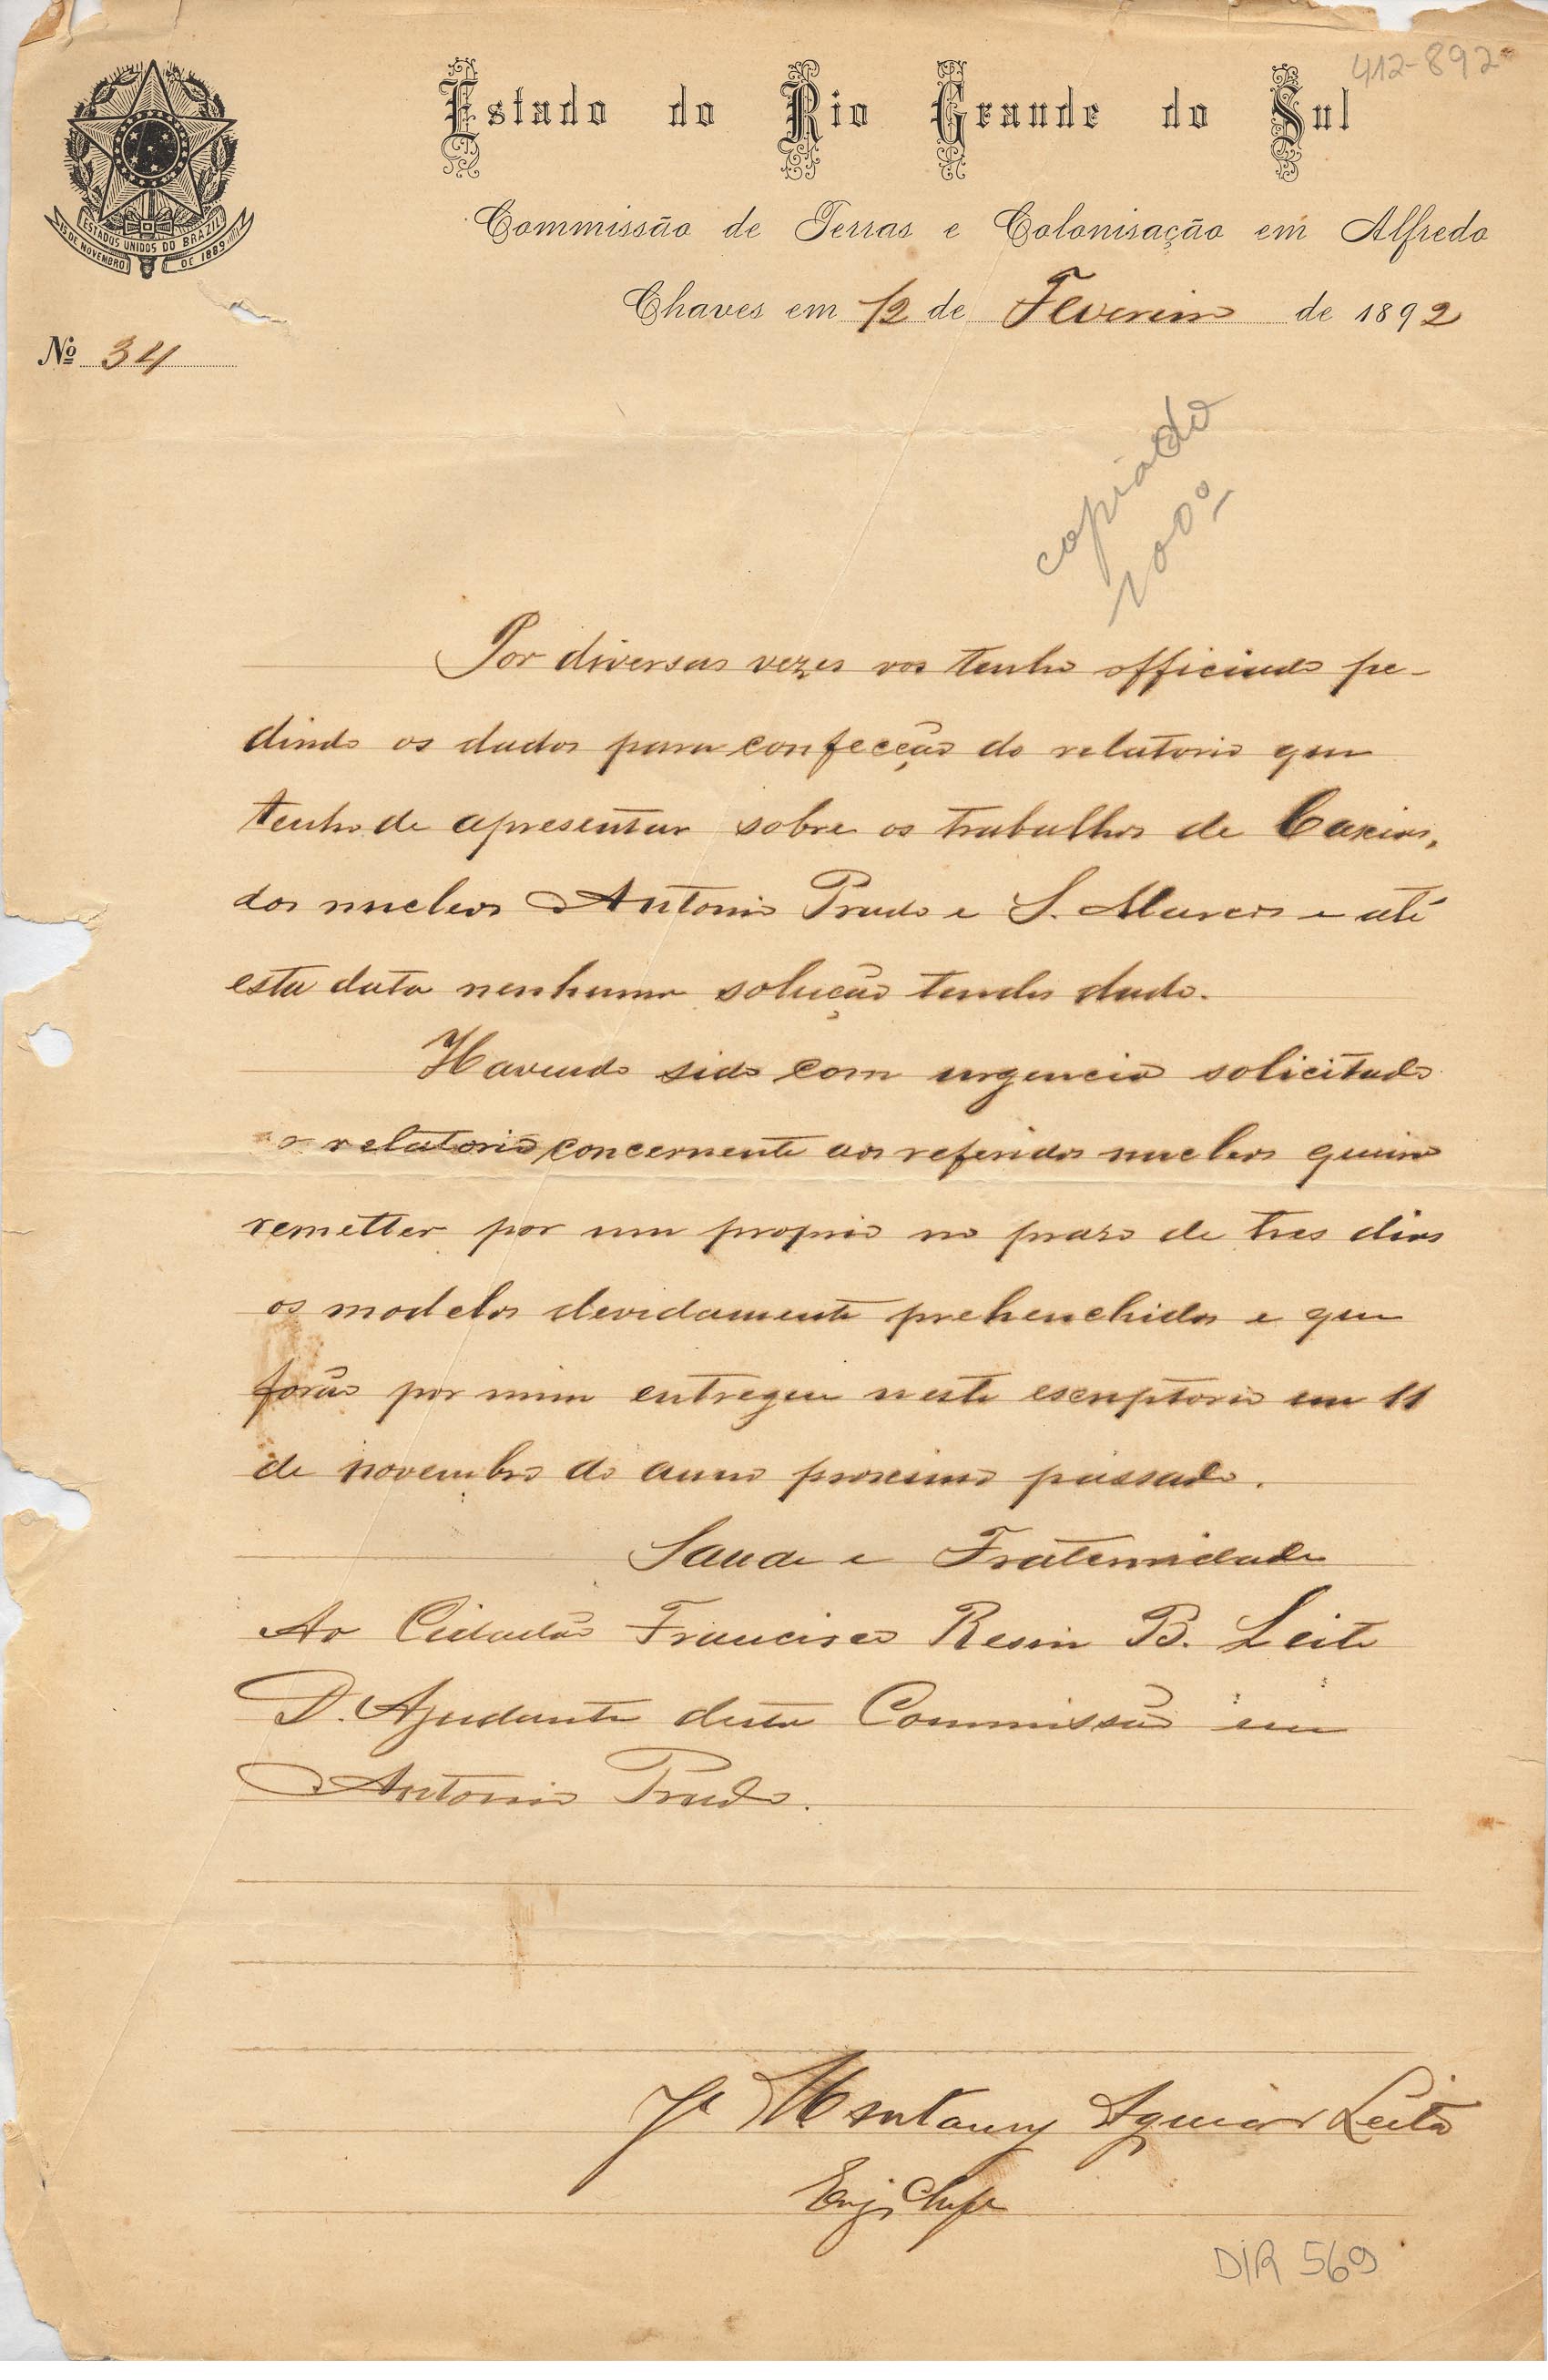 412-892
Estado do Rio Grande do Sul
ESTADOS UNIDOS DO BRAZIL
15 DE NOVEMBRO DE 1889
Commissão de Terras e Colonisação em Alfredo
Chaves em 12 de Fevereiro de 1892
Nº 34
copiado
Por diversas vezes vos tenho officiado pe-
dindo os dados para confecção do relatorio que
tenho de apresentar sobre os trabalhos de Caxias,
dos nucleos Antonio Prado e S. Marcos e até
esta data nenhuma solução tendes dado.
Havendo sido com urgencia solicitado
o relatorio concernente aos referidos nucleos queira
remetter por um proprio no praso de tres dias
os modelos devidamente prehenchidos e que
forão por mim entregue neste escriptorio em 11
de novembro do anno proximo passado.
Saude e Fraternidade
Ao Cidadão Francisco Resin B. Leite
D. Ajudante desta Commissão em
Antonio Prado.
Je Montaury Aguiar Leitão
Engº Chefe
DIR 569